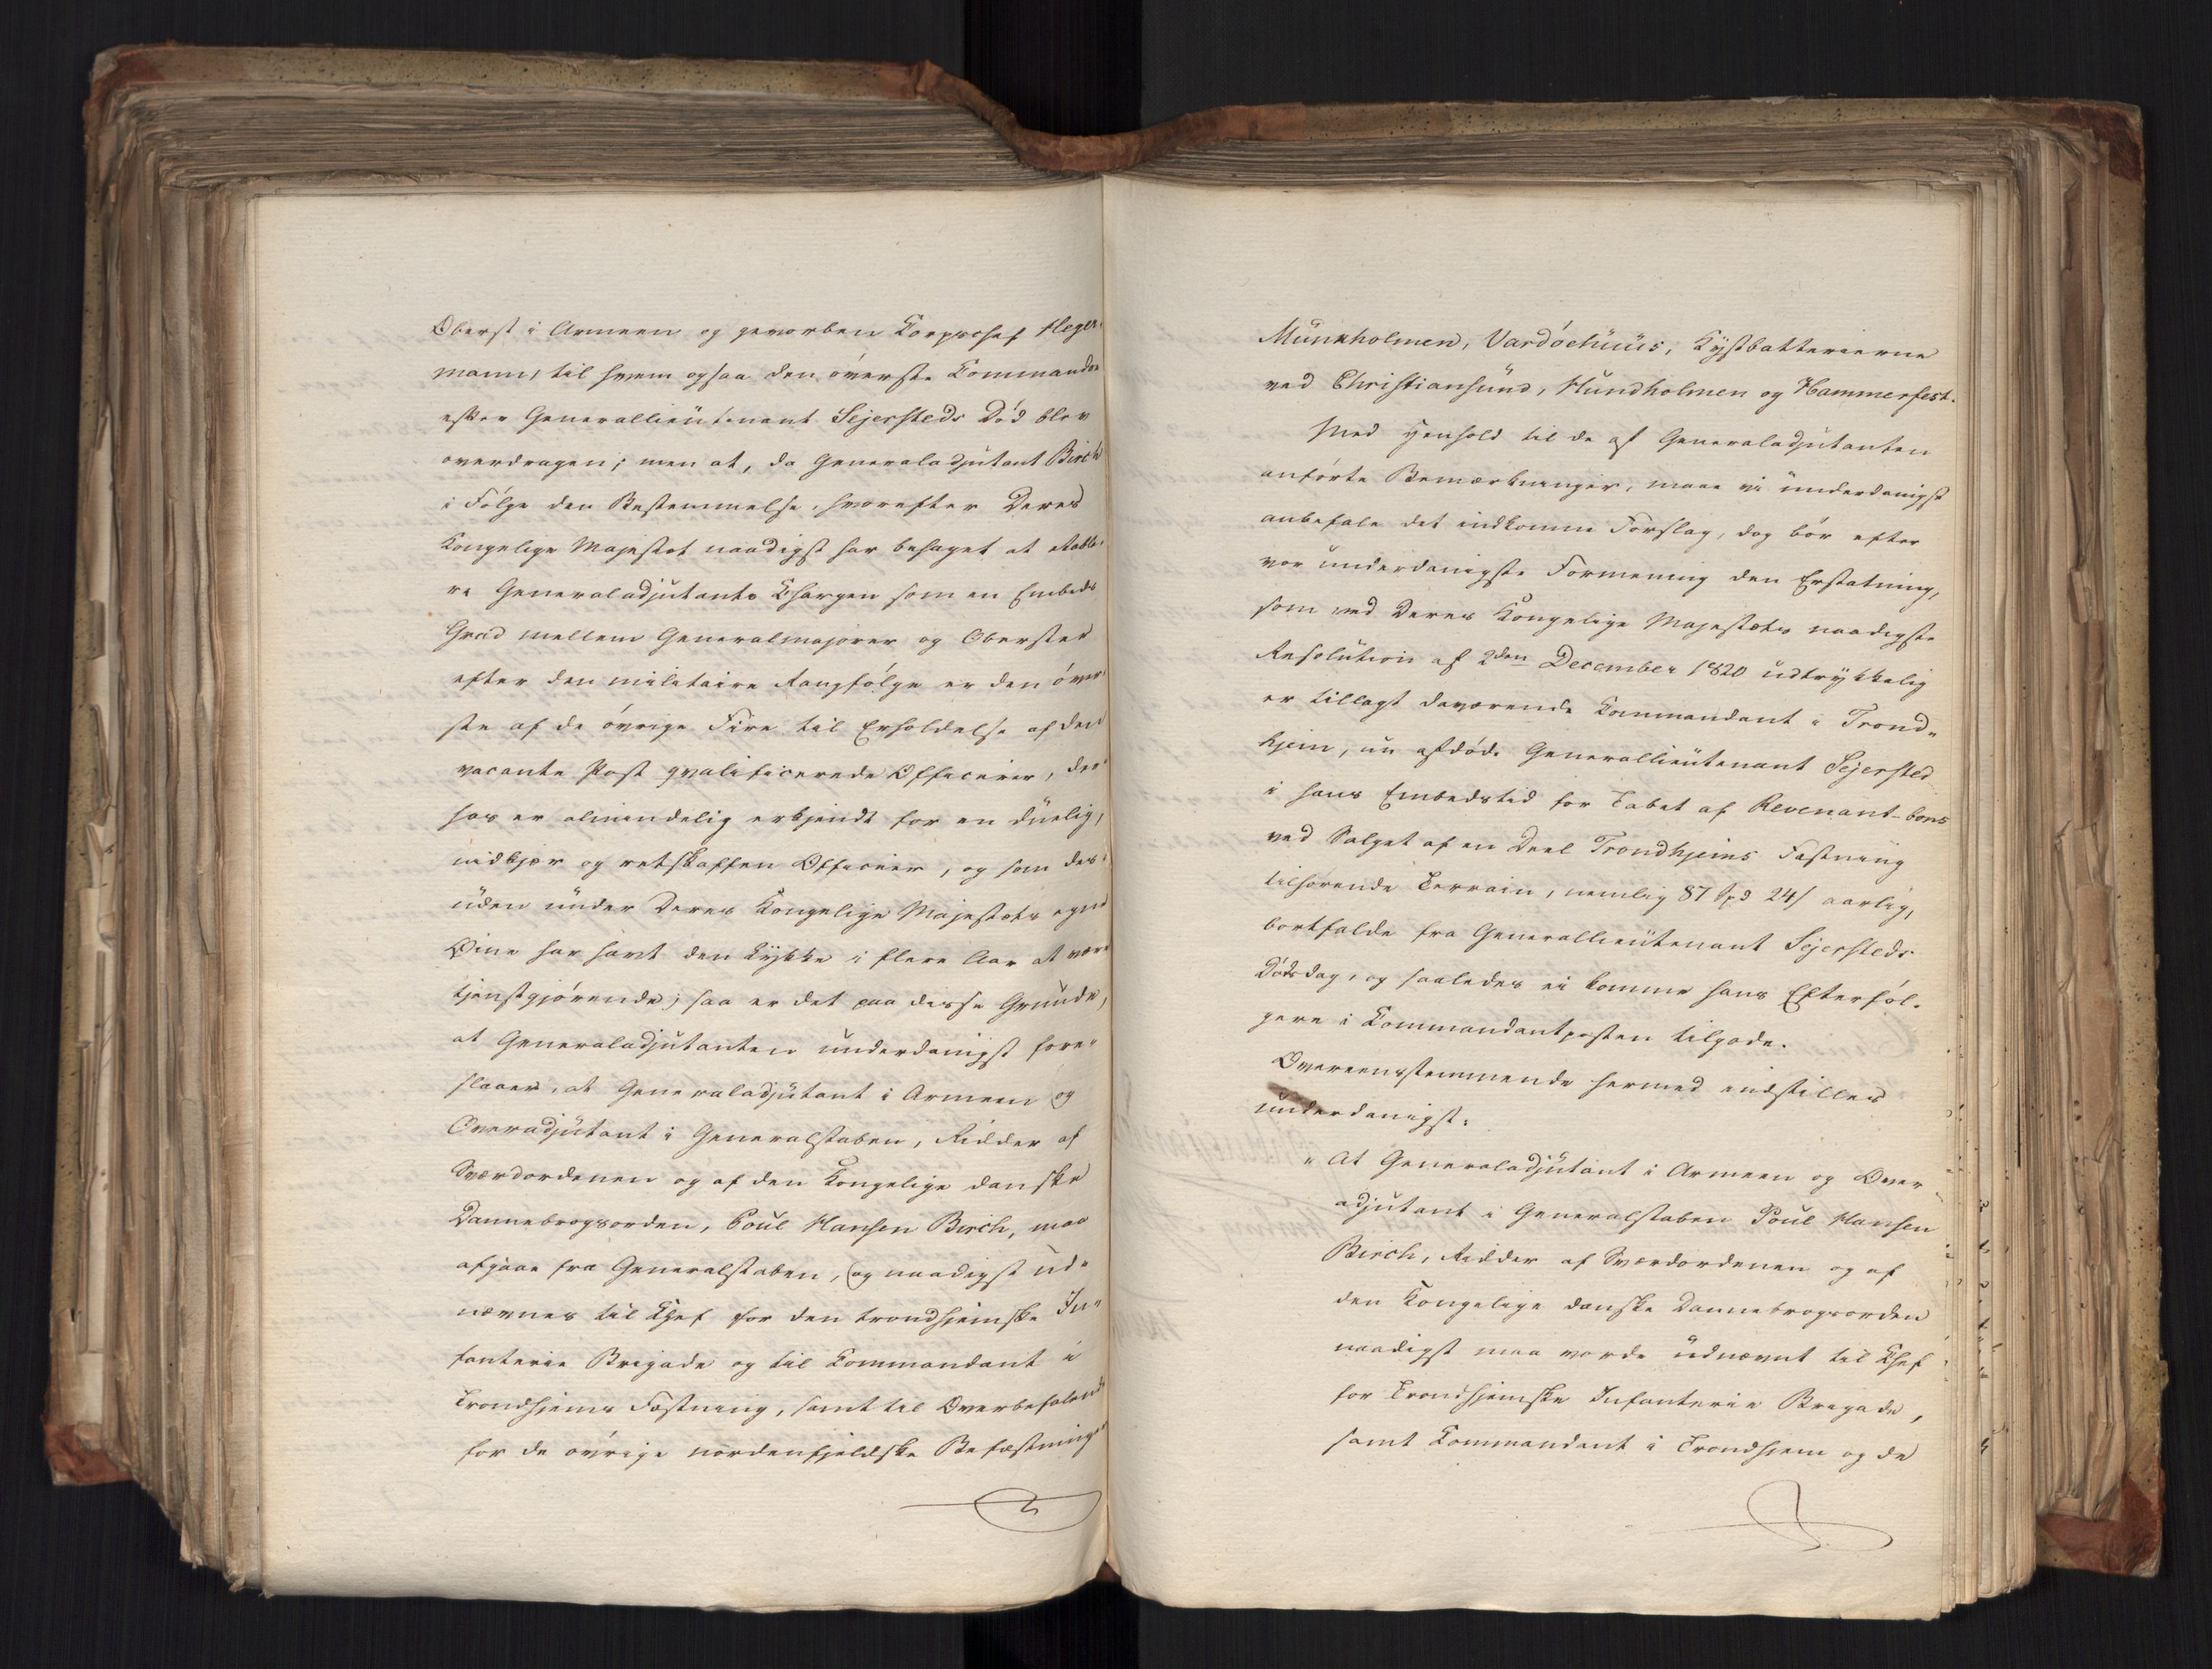 Oberst i Armeen og geworben Korpschef Heger-
mann, til hvem ogsaa den øverste Kommando
efter Generallieutenant Sejersteds Död blev
overdragen; men at, da Generaladjutant Birch
i Fölge den Bestemmelse, hvorefter Deres
Kongelige Majestæt naadigst har behaget at etable-
re Generaladjutants Chargen som en Embeds
Grad mellem Generalmajorer og Oberster
efter den militaire Rangfölge er den över-
ste af de övrige Fire til Erholdelse af den
vacante Post qvalificerede Officerer, der-
hos er almindelig erkjendt for en duelig,
nidkjær og retskaffen Officeer, og som des-
uden under Deres Kongelige Majestæts egne
Öine har havt den Lykke i flere Aar at være
tjenstgjörende; saa er det paa disse Grunde,
at Generaladjutanten underdanigst fore-
slaaer, at Generaladjutant i Armeen og
Overadjutant i Generalstaben, Ridder af
Sværdordenen og af den Kongelige danske
Dannebrogsorden, Poul Hansen Birch, maa
afgaae fra Generalstaben, og naadigst ud-
nævnes til Chef for den trondhjemske In-
fanterie Brigade og til Kommandant i
Trondhjems Fæstning, samt til Overbefalende
for de övrige nordenfjeldske Befæstninger
Munkholmen, Vardöehuus, Kystbatterierne
ved Christiansund, Hundholmen og Hammerfest.
Med Henhold til de af Generaladjutanten
anförte Bemærkninger, maae vi underdanigst
anbefale det indkomne Forslag, dog bör efter
vor underdanigste Formening den Erstatning,
som ved Deres Kongelige Majestæts naadigste
Resolution af 2den December 1820 udtrykkelig
er tillagt daværende Kommandant i Trond-
hjem, nu afdöde Generallieutenant Sejersted
i hans Embedstid for Tabet af Revenant-bons
ved Salget af en Deel Trondhjems Fæstning
tilhørende Terrain, nemlig 87 Spd 24 ß aarlig,
bortfalde fra Generallieutenant Sejersteds
Dödsdag, og saaledes ei komme hans Efterföl-
gere i Kommandantposten tilgode.
Overeensstemmende hermed indstilles
underdanigst:
"At Generaladjutant i Armeen og Over-
adjutant i Generalstaben Poul Hansen
Birch, Ridder af Sværdordenen og af
den Kongelige danske Dannebrogsorden
naadigst maa vorde udnævnt til Chef
for Trondhjemske Infanterie Brigade,
samt Kommandant i Trondhjem og de